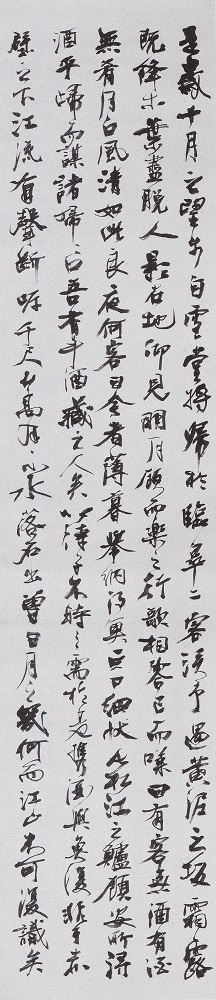 是歲十月之望步自雪堂將歸於臨皋二客從予過黃泥之坂霜露
既降木葉盡脫人影在地仰見明月顧而樂之行歌相答已而嘆曰有客無酒有酒
無肴月白風清如此良夜何客曰今者薄暮舉網得魚巨口細狀如松江之鱸顧安所得
酒乎歸而謀諸婦〻曰吾有斗酒藏之久矣以待子不時之需於是攜酒與魚復遊於赤
壁之下江流有聲斷岸千尺山高月小水落石出曾日月之幾何而江山不可復識矣